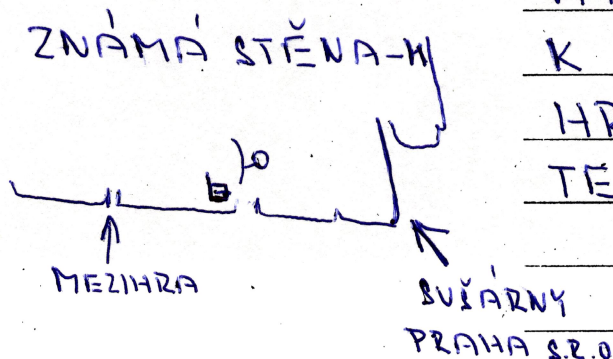 ZNÁMÁ STĚNA-H
K
MEZIHRA
SUŠÁRNY
PRAHA S.R.O